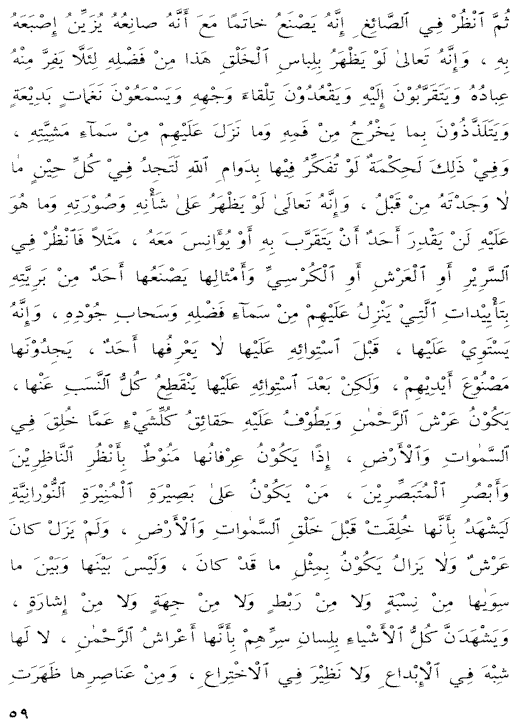 ثُمَّ ٱنْظُرْ فِي ٱلصَّائِغِ إِنَّهُ يَصْنَعُ خاتَمًا مَعَ أَنَّهُ صانِعُهُ يُزَيِّنُ إِصْبَعَهُ
بِهِ ، وَإِنَّهُ تَعالىٰ لَوْ يَظْهَرُ بِلِباسِ ٱلْخَلْقِ هَذا مِنْ فَضْلِهِ لِئَلَّا يَفِرَّ مِنْهُ
عِبادُهُ وَيَتَقَرَّبُوْنَ إِلَيْهِ وَيَقْعُدُوْنَ تِلْقاءَ وَجْهِهِ وَيَسْمَعُوْنَ نَغَماتٍ بَدِيْعَةٍ
وَيَتَلَذَّذُوْنَ بِما يَخْرُجُ مِنْ فَمِهِ وَما نَزَلَ عَلَيْهِمْ مِنْ سَمآءِ مَشِيَّتِهِ ،
وَفِيْ ذَلِكَ لَحِكْمَةٌ لَوْ تُفَكِّرُ فِيْها بِدَوامِ ٱللّهِ لَتَجِدُ فِيْ كُلِّ حِيْنٍ مَا
لَا وَجَدْتَهُ مِنْ قَبْلُ ، وَإِنَّهُ تَعالَىٰ لَوْ يَظْهَرُ عَلىٰ شَأْنِهِ وَصُوْرَتِهِ وَما هُوَ
عَلَيْهِ لَنْ يَقْدِرَ أَحَدٌ أَنْ يَتَقَرَّبَ بِهِ أَوْ يُؤَانِسَ مَعَهُ ، مَثَلًا فَٱنْظُرْ فِي
ٱلسَّرِيْرِ أَوِ ٱلْعَرْشِ أَوِ ٱلْكُرْسِيِّ وَأَمْثالِها يَصْنَعُها أَحَدٌ مِنْ بَرِيَّتِهِ
بِتَأْيِيْداتِ ٱلَّتِيْ يَنْزِلُ عَلَيْهِمْ مِنْ سَمآءِ فَضْلِهِ وَسَحابِ جُوْدِهِ ، وَإِنَّهُ
يَسْتَوِيْ عَلَيْها ، قَبْلَ ٱسْتِوائِهِ عَلَيْها لَا يَعْرِفُها أَحَدٌ ، يَجِدُوْنَها
مَصْنُوْعَ أَيْدِيْهِمْ ، وَلَكِنْ بَعْدَ ٱسْتِوائِهِ عَلَيْها يَنْقَطِعُ كُلُّ ٱلنَّسَبِ عَنْها ،
يَكُوْنُ عَرْشَ ٱلرَّحْمٰنِ وَيَطُوْفُ عَلَيْهِ حَقائِقُ كُلِّشَيْءٍ عَمَّا خُلِقَ فِي
ٱلسَّمٰواتِ وَٱلْأَرْضِ ، إِذًا يَكُوْنُ عِرْفانُها مَنُوْطٌ بِأَنْظُرِ ٱلنَّاظِرِيْنَ
وَأَبْصُرِ ٱلْمُتَبَصِّرِيْنَ ، مَنْ يَكُوْنُ عَلىٰ بَصِيْرَةِ ٱلْمُنِيْرَةِ ٱلنُّوْرانِيَّةِ
لَيَشْهَدُ بِأَنَّها خُلِقَتْ قَبْلَ خَلْقِ ٱلسَّمٰواتِ وَٱلْأَرْضِ ، وَلَمْ يَزَلْ كانَ
عَرْشٌ وَلَا يَزالُ يَكُوْنُ بِمِثْلِ ما قَدْ كانَ ، وَلَيْسَ بَيْنَها وَبَيْنَ ما
سِوَيٰها مِنْ نِسْبَةٍ وَلا مِنْ رَبْطٍ وَلا مِنْ جِهَةٍ وَلا مِنْ إِشارَةٍ ،
وَيَشْهَدَنَّ كُلُّ ٱلْأَشْياءِ بِلِسانِ سِرِّهِمْ بِأَنَّها أَعْراشُ ٱلرَّحْمٰنِ ، لا لَها
شِبْهَ فِي ٱلْإِبْداعِ وَلا نَظِيْرَ فِي ٱلْاخْتِراعِ ، وَمِنْ عَناصِرِها ظَهَرَتْ
٥٩